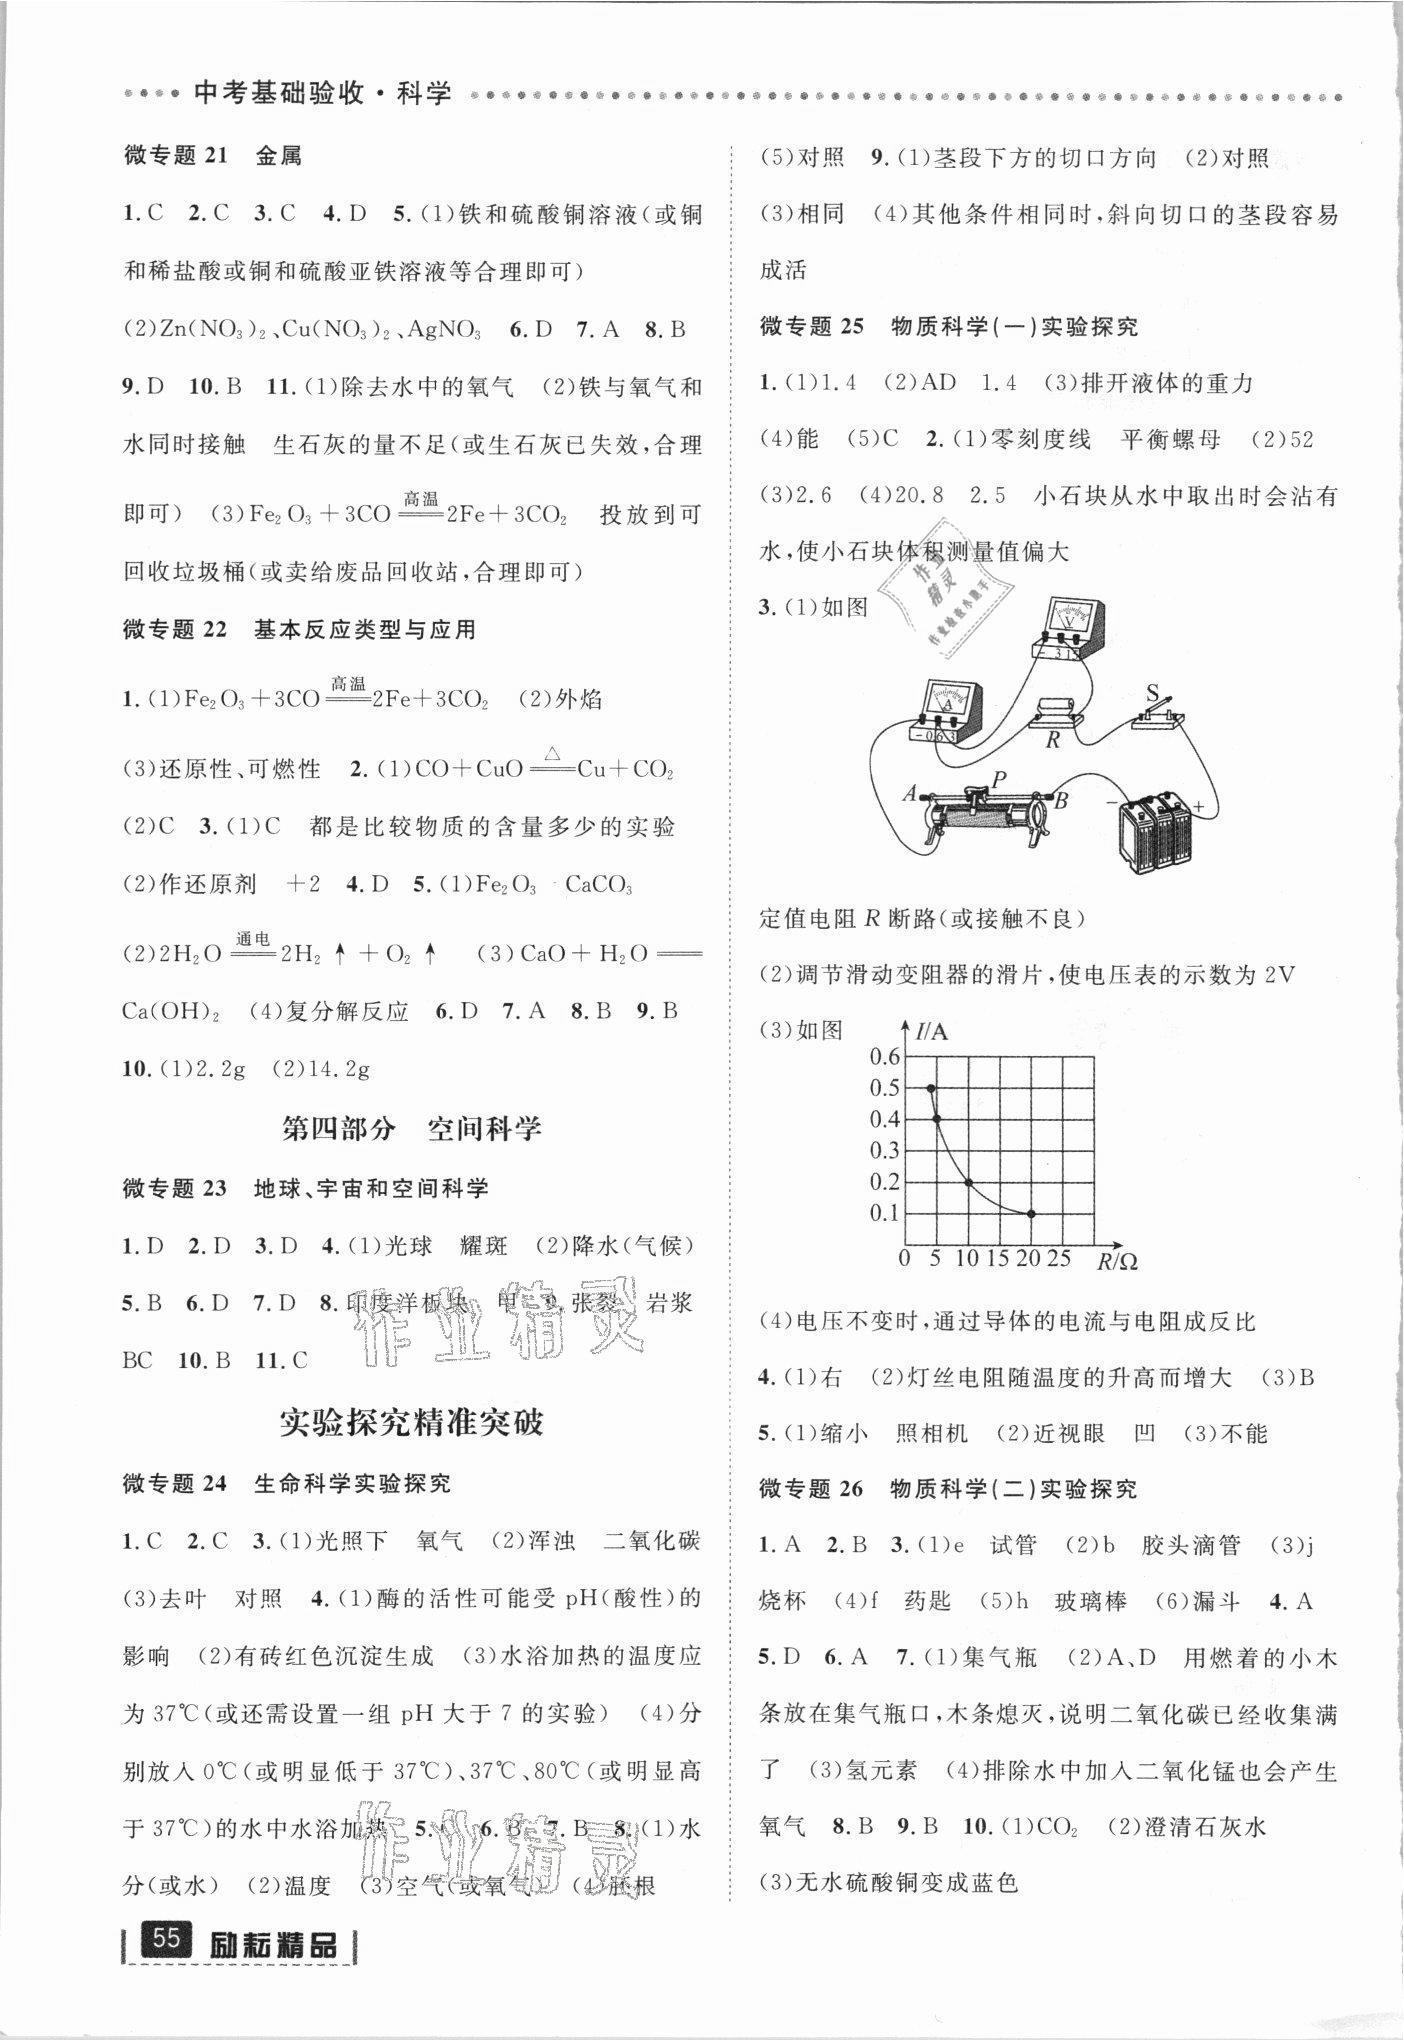 中考基础验收·科学
微专题 21 金属
1.C 2.C 3.C 4.D 5.(1)铁和硫酸铜溶液(或铜
和稀盐酸或铜和硫酸亚铁溶液等合理即可)
(2)Zn(NO₃)₂、Cu(NO₃)₂、AgNO₃ 6.D 7.A 8.B
9.D 10.B 11.(1)除去水中的氧气 (2)铁与氧气和
水同时接触 生石灰的量不足(或生石灰已失效,合理
高温
即可) (3)Fe₂O₃+3CO══2Fe+3CO₂ 投放到可
回收垃圾桶(或卖给废品回收站,合理即可)
微专题 22 基本反应类型与应用
高温
1.(1)Fe₂O₃+3CO══2Fe+3CO₂ (2)外焰
△
(3)还原性、可燃性 2.(1)CO+CuO══Cu+CO₂
(2)C 3.(1)C 都是比较物质的含量多少的实验
(2)作还原剂 +2 4.D 5.(1)Fe₂O₃ CaCO₃
通电
(2)2H₂O══2H₂↑+O₂↑ (3)CaO+H₂O══
Ca(OH)₂ (4)复分解反应 6.D 7.A 8.B 9.B
10.(1)2.2g (2)14.2g
第四部分 空间科学
微专题 23 地球、宇宙和空间科学
1.D 2.D 3.D 4.(1)光球 耀斑 (2)降水(气候)
5.B 6.D 7.D 8.印度洋板块 甲 9.张裂 岩浆
BC 10.B 11.C
作业精灵
实验探究精准突破
微专题 24 生命科学实验探究
1.C 2.C 3.(1)光照下 氧气 (2)浑浊 二氧化碳
(3)去叶 对照 4.(1)酶的活性可能受 pH(酸性)的
影响 (2)有砖红色沉淀生成 (3)水浴加热的温度应
为 37℃(或还需设置一组 pH 大于 7 的实验) (4)分
别放入 0℃(或明显低于 37℃)、37℃、80℃(或明显高
于 37℃)的水中水浴加热 5. 6.B 7.B 8.(1)水
分(或水) (2)温度 (3)空气(或氧气) (4)胚根
作业精灵
55 励耘精品
(5)对照 9.(1)茎段下方的切口方向 (2)对照
(3)相同 (4)其他条件相同时,斜向切口的茎段容易
成活
微专题 25 物质科学(一)实验探究
1.(1)1.4 (2)AD 1.4 (3)排开液体的重力
(4)能 (5)C 2.(1)零刻度线 平衡螺母 (2)52
(3)2.6 (4)20.8 2.5 小石块从水中取出时会沾有
水,使小石块体积测量值偏大
作业
精灵
作业检查小助手
3.(1)如图
V
- 3 15
A
-0.6 3
R
S
A
P
B
- +
定值电阻 R 断路(或接触不良)
(2)调节滑动变阻器的滑片,使电压表的示数为 2V
(3)如图
I/A
0.6
0.5
0.4
0.3
0.2
0.1
0 5 10 15 20 25 R/Ω
(4)电压不变时,通过导体的电流与电阻成反比
4.(1)右 (2)灯丝电阻随温度的升高而增大 (3)B
5.(1)缩小 照相机 (2)近视眼 凹 (3)不能
微专题 26 物质科学(二)实验探究
1.A 2.B 3.(1)e 试管 (2)b 胶头滴管 (3)j
烧杯 (4)f 药匙 (5)h 玻璃棒 (6)漏斗 4.A
5.D 6.A 7.(1)集气瓶 (2)A、D 用燃着的小木
条放在集气瓶口,木条熄灭,说明二氧化碳已经收集满
了 (3)氢元素 (4)排除水中加入二氧化锰也会产生
氧气 8.B 9.B 10.(1)CO₂ (2)澄清石灰水
(3)无水硫酸铜变成蓝色